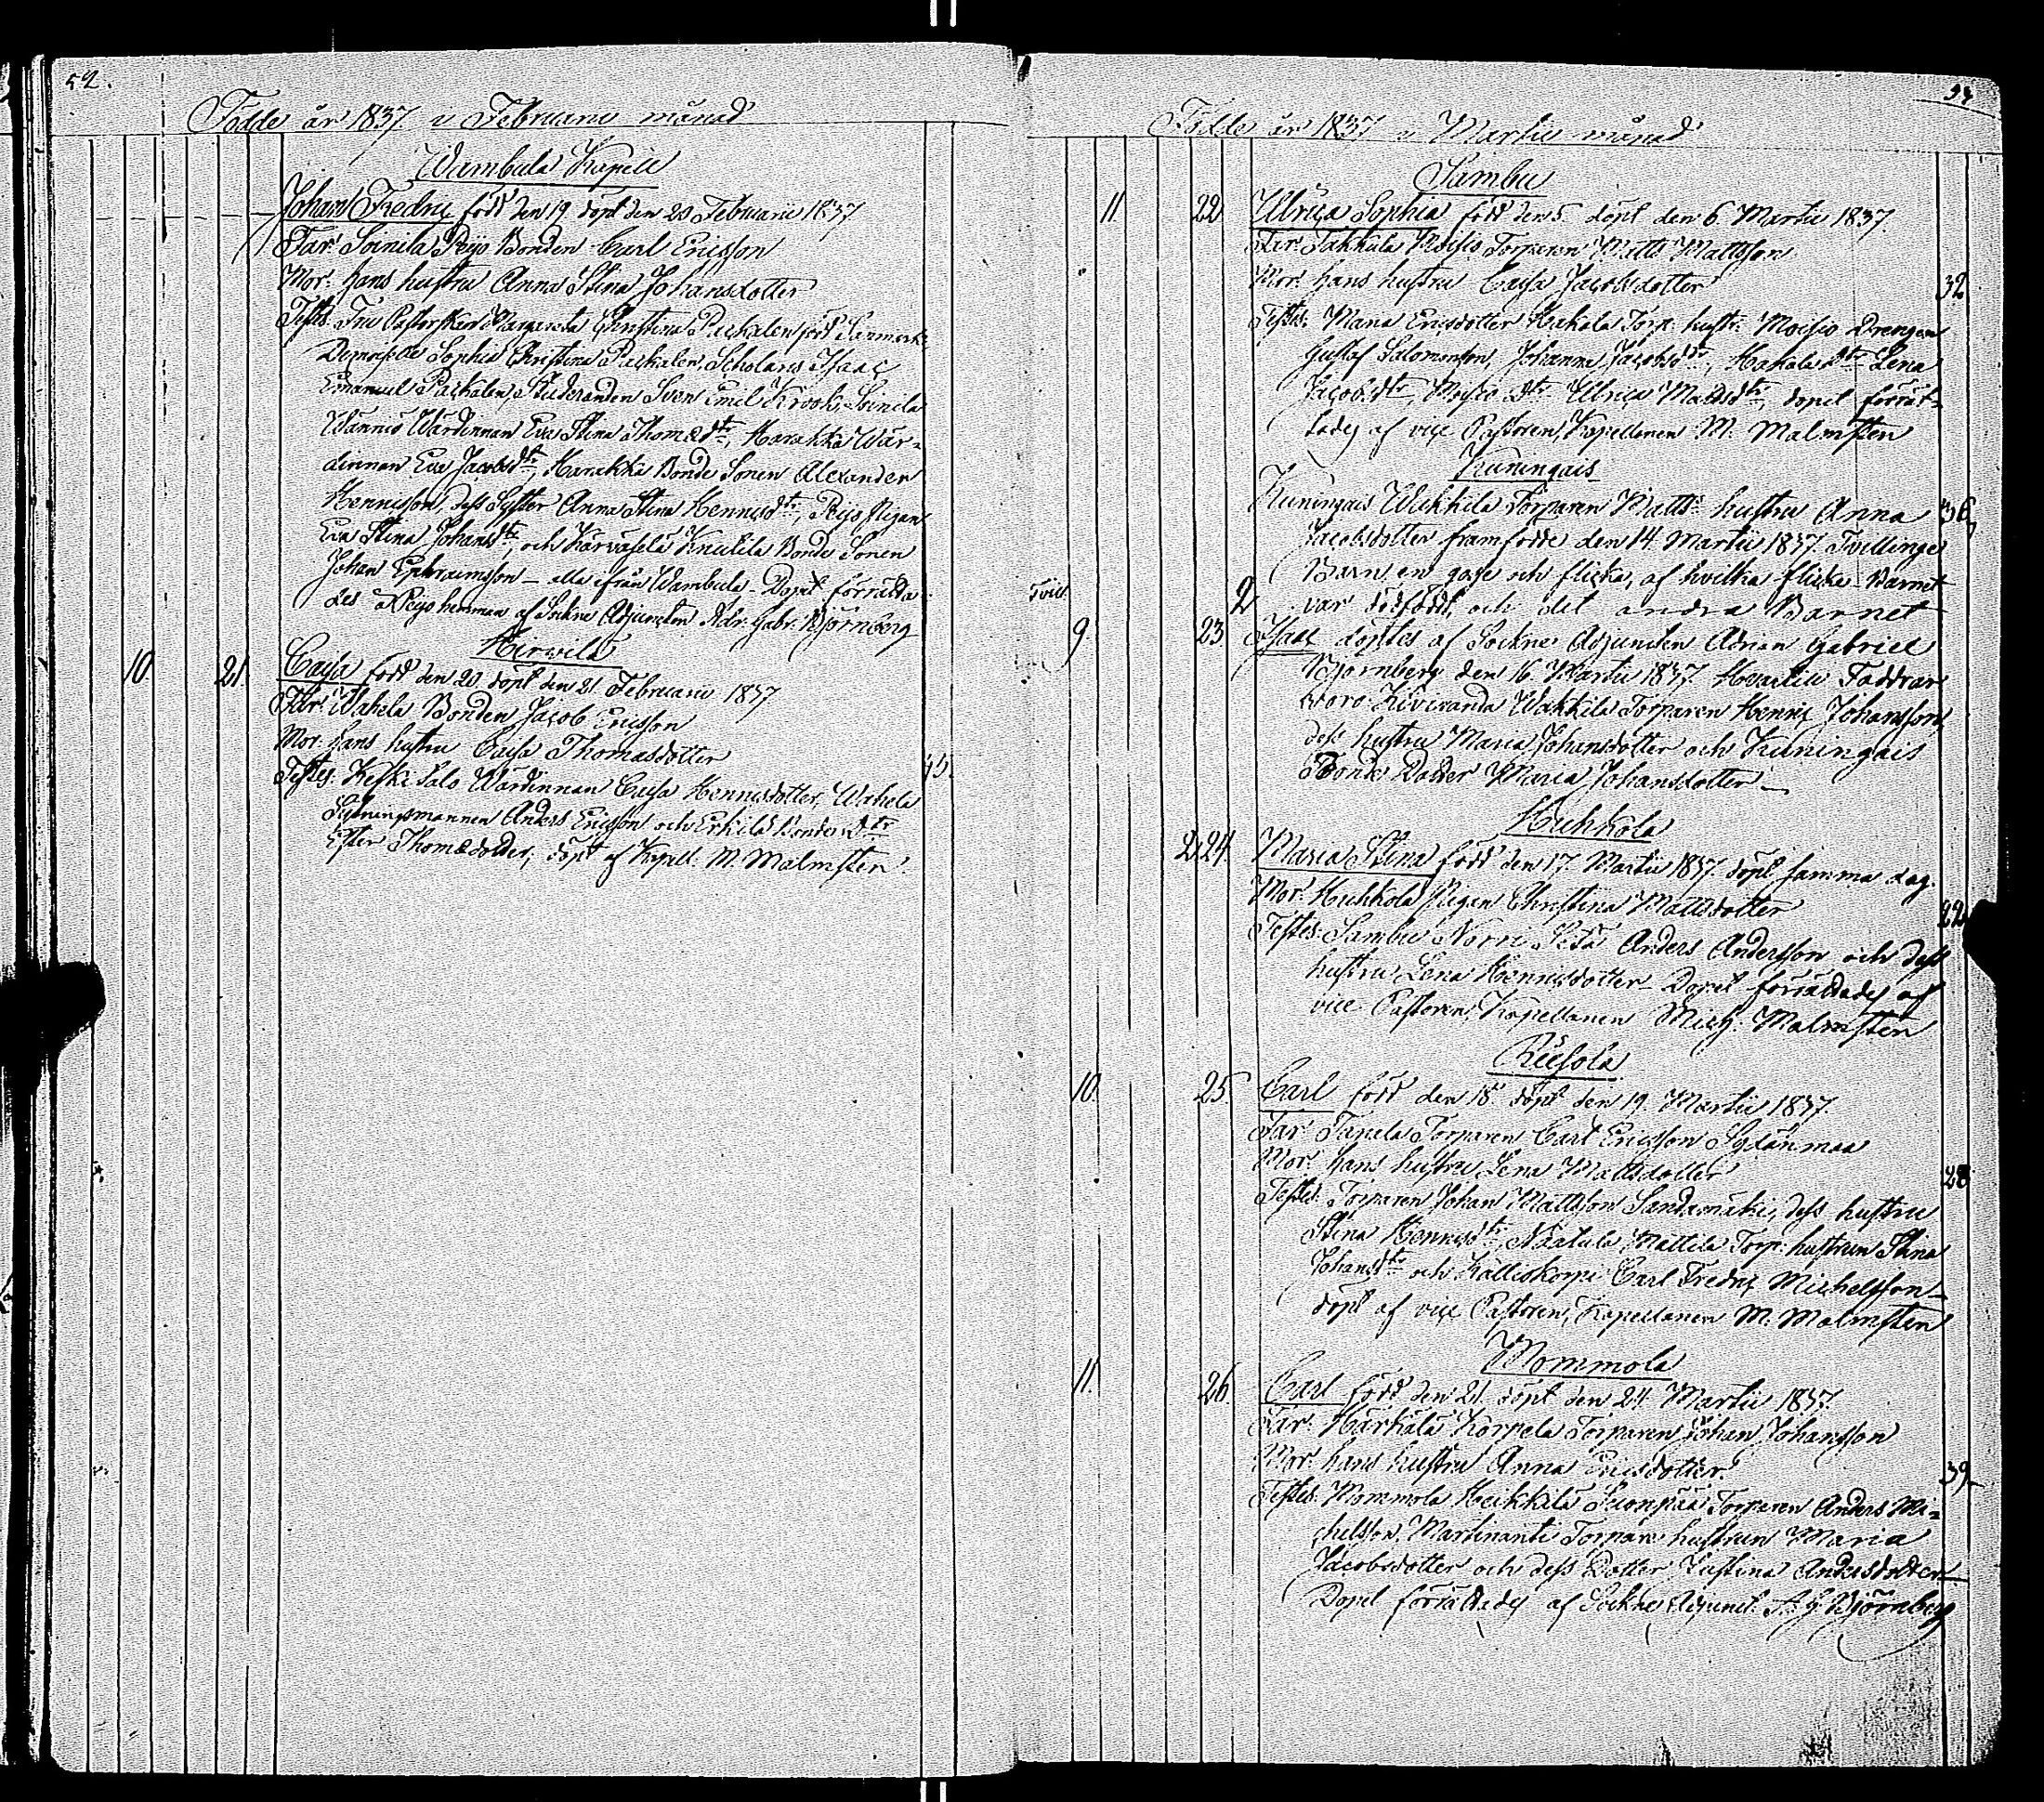 52.
Födde år 1837 i Februarii månad
Wambula Kapell
Johan Fredric född den 19 döpt den 20 Februarii 1837
Far: Soinila Reijo Bonden Carl Ericsson
Mor: hans hustru Anna Stina Johansdotter
Testes: Fru Pastorskan Margareta Christina Pachalen född
Demoiselle Sophia Christina Pachalen, Scholaris Isaac
Emanuel Pachalen, Studeranden Sven Emil Krook, Soinila
Wännio Wärdinnan Eva Stina Thomædtr, Harakka Wär-
dinnan Eva Jacobsdtr, Harakka Bonde Sonen Alexander
Henricsson, dess Syster Anna Stina Henricsdtr, Reijo Pigan
Eva Stina Johansdtr, och Kärväselä Knuutila Bonde Sonen
Johan Ephraimsson - alla ifrån Wambula - Dopet förrätta-
des å Reijo hemman af Sockne Adjuncten Adr. Gabr. Björnberg
Hirvilä
10. 21. Caisa född den 20 döpt den 21 Februarii 1837
Far: Wahela Bonden Jacob Ericsson
Mor: hans hustru Caisa Thomasdotter
Testes: Keski Salo Wärdinnan Caisa Henricsdotter, Wahela
Sexmansmannen Anders Ericsson och Erkilä Bonde Dtr
Ester Thomædotter; döpt af Kapell. M. Malmsten.
45.
53
Födde år 1837 i Martii månad
Sambu
11 22 Ulrica Sophia född den 5 döpt den 6 Martii 1837.
Far: Takkula Moisio Torparen Matts Mattsson
Mor: hans hustru Caisa Jacobsdotter
32
Testes: Maria Ericsdotter Hakala Torp. hustr. Moisio Drengen
Gustaf Salomonsson, Johanna Jacobsdtr, Hakala dtr Lena
Jacobsdtr, Moisio dtr Ulrica Mattsdtr, dopet förrät-
tades af vice Pastoren, Kapellanen M. Malmsten
Kuningais
Kuningais Wäkkilä Torparen Matts hustru Anna
36
Jacobsdotter framfödde den 14 Martii 1837 Tvillinge
Barn, en gosse och flicka, af hvilka flicke-Barnet
Tvill. 2 var dödfödt, och det andra Barnet
9 23. Isaac döptes af Sockne Adjuncten Adrian Gabriel
Björnberg den 16 Martii 1837. Hvartill Faddrar
voro Kiviranda Wäkkilä Torparen Henric Johansson,
dess hustru Maria Johansdotter och Kuningais
Bonde Dotter Maria Johansdotter -
Huhkola
2. 24. Maria Stina född den 17. Martii 1837. döpt samma dag.
Mor: Huhkola Pigan Christina Mattsdotter
22
Testes: Sambu Norri Anders Andersson och dess
hustru Lena Henricsdotter - Dopet förrättades af
vice Pastoren, Kapellanen Mich. Malmsten
Rusola
10. 25. Carl född den 18 döpt den 19. Martii 1837.
Far: Tanela Torparen Carl Ericsson Sydänmaa
Mor: hans hustru Lena Mattsdotter
28
Testes: Torparen Johan Mattsson Sandamäki, dess hustru
Stina Henricsdtr, Naatula Mattila Torp. hustrun Stina
Johansdtr och Kalliokorpi Carl Fredric Michelsson -
döpt af vice Pastoren, Kapellanen M. Malmsten
Mommola
11. 26. Carl född den 21. döpt den 24 Martii 1837.
Far: Härkälä Korpela Torparen Johan Johansson
Mor: hans hustru Anna Ericsdotter
39
Testes: Mommola Heikkilä Suonpää Torparen Anders Mi-
chelsson, Martinanti Torpare hustrun Maria
Jacobsdotter och dess Dotter Justina Andersdotter -
Dopet förrättades af Sockne Adjunct. A. G. Björnberg